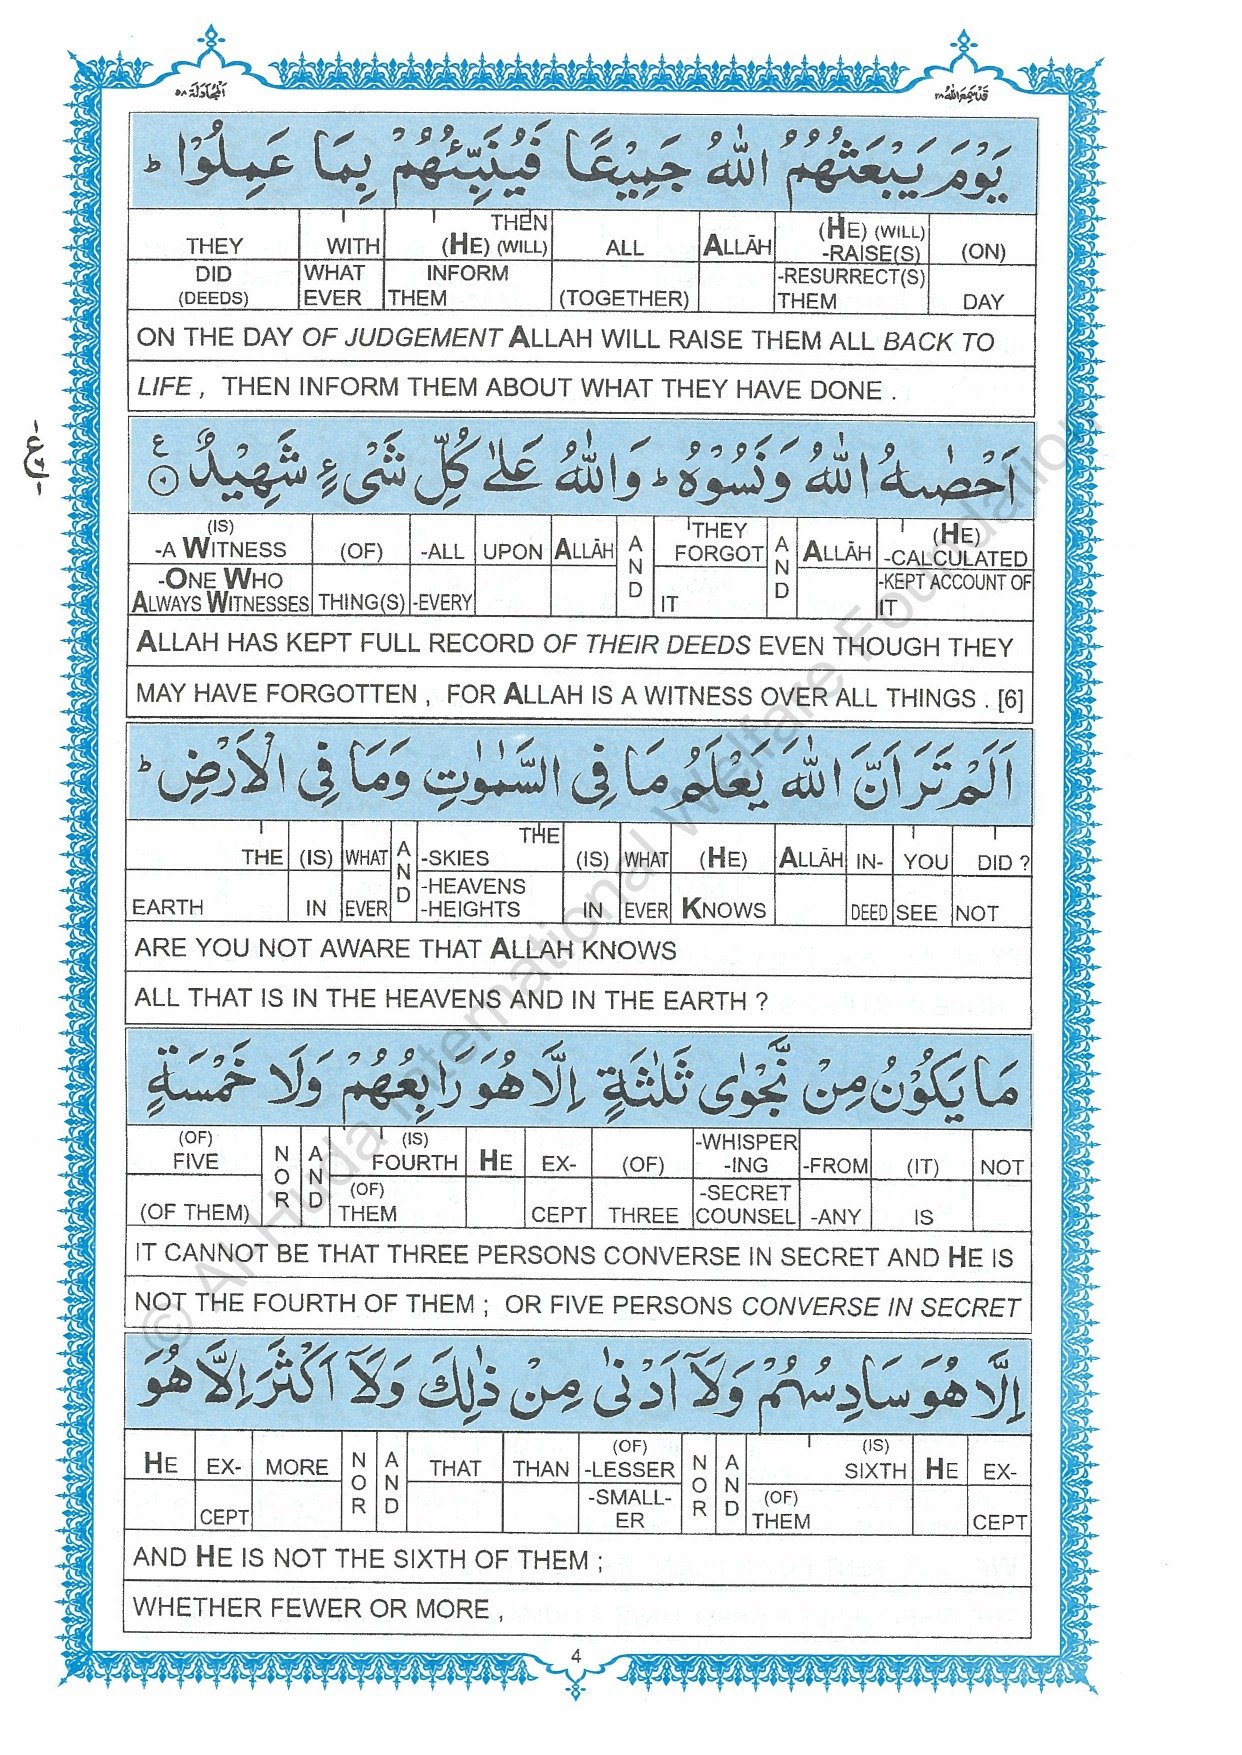 المجادلة ٥٨
قد سمع الله ٢٨
يَوْمَ يَبْعَثُهُمُ اللّٰهُ جَمِيْعًا فَيُنَبِّئُهُمْ بِمَا عَمِلُوْا ؕ
THEY WITH THEN (HE) (WILL) ALL ALLĀH (HE) (WILL) -RAISE(S) (ON)
DID (DEEDS) WHAT EVER INFORM THEM (TOGETHER) -RESURRECT(S) THEM DAY
ON THE DAY OF JUDGEMENT ALLAH WILL RAISE THEM ALL BACK TO
LIFE , THEN INFORM THEM ABOUT WHAT THEY HAVE DONE .
اَحْصٰىهُ اللّٰهُ وَنَسُوْهُ ؕ وَاللّٰهُ عَلٰى كُلِّ شَىْءٍ شَهِيْدٌ ع
(IS) -A WITNESS (OF) -ALL UPON ALLĀH AND THEY FORGOT AND ALLĀH (HE) -CALCULATED
-ONE WHO ALWAYS WITNESSES THING(S) -EVERY IT -KEPT ACCOUNT OF IT
ALLAH HAS KEPT FULL RECORD OF THEIR DEEDS EVEN THOUGH THEY
MAY HAVE FORGOTTEN , FOR ALLAH IS A WITNESS OVER ALL THINGS . [6]
اَلَمْ تَرَ اَنَّ اللّٰهَ يَعْلَمُ مَا فِى السَّمٰوٰتِ وَمَا فِى الْاَرْضِ ؕ
THE (IS) WHAT AND THE -SKIES (IS) WHAT (HE) ALLĀH IN- YOU DID ?
EARTH IN EVER -HEAVENS -HEIGHTS IN EVER KNOWS DEED SEE NOT
ARE YOU NOT AWARE THAT ALLAH KNOWS
ALL THAT IS IN THE HEAVENS AND IN THE EARTH ?
مَا يَكُوْنُ مِنْ نَّجْوٰى ثَلٰثَةٍ اِلَّا هُوَ رَابِعُهُمْ وَلَا خَمْسَةٍ
(OF) FIVE NOR AND (IS) FOURTH HE EX- (OF) -WHISPER -ING -FROM (IT) NOT
(OF THEM) (OF) THEM CEPT THREE -SECRET COUNSEL -ANY IS
IT CANNOT BE THAT THREE PERSONS CONVERSE IN SECRET AND HE IS
NOT THE FOURTH OF THEM ; OR FIVE PERSONS CONVERSE IN SECRET
اِلَّا هُوَ سَادِسُهُمْ وَلَاۤ اَدْنٰى مِنْ ذٰلِكَ وَلَاۤ اَكْثَرَ اِلَّا هُوَ
HE EX- MORE NOR AND THAT THAN (OF) -LESSER NOR AND (IS) SIXTH HE EX-
CEPT -SMALL- ER (OF) THEM CEPT
AND HE IS NOT THE SIXTH OF THEM ;
WHETHER FEWER OR MORE ,
4
© Al-Huda International Welfare Foundation